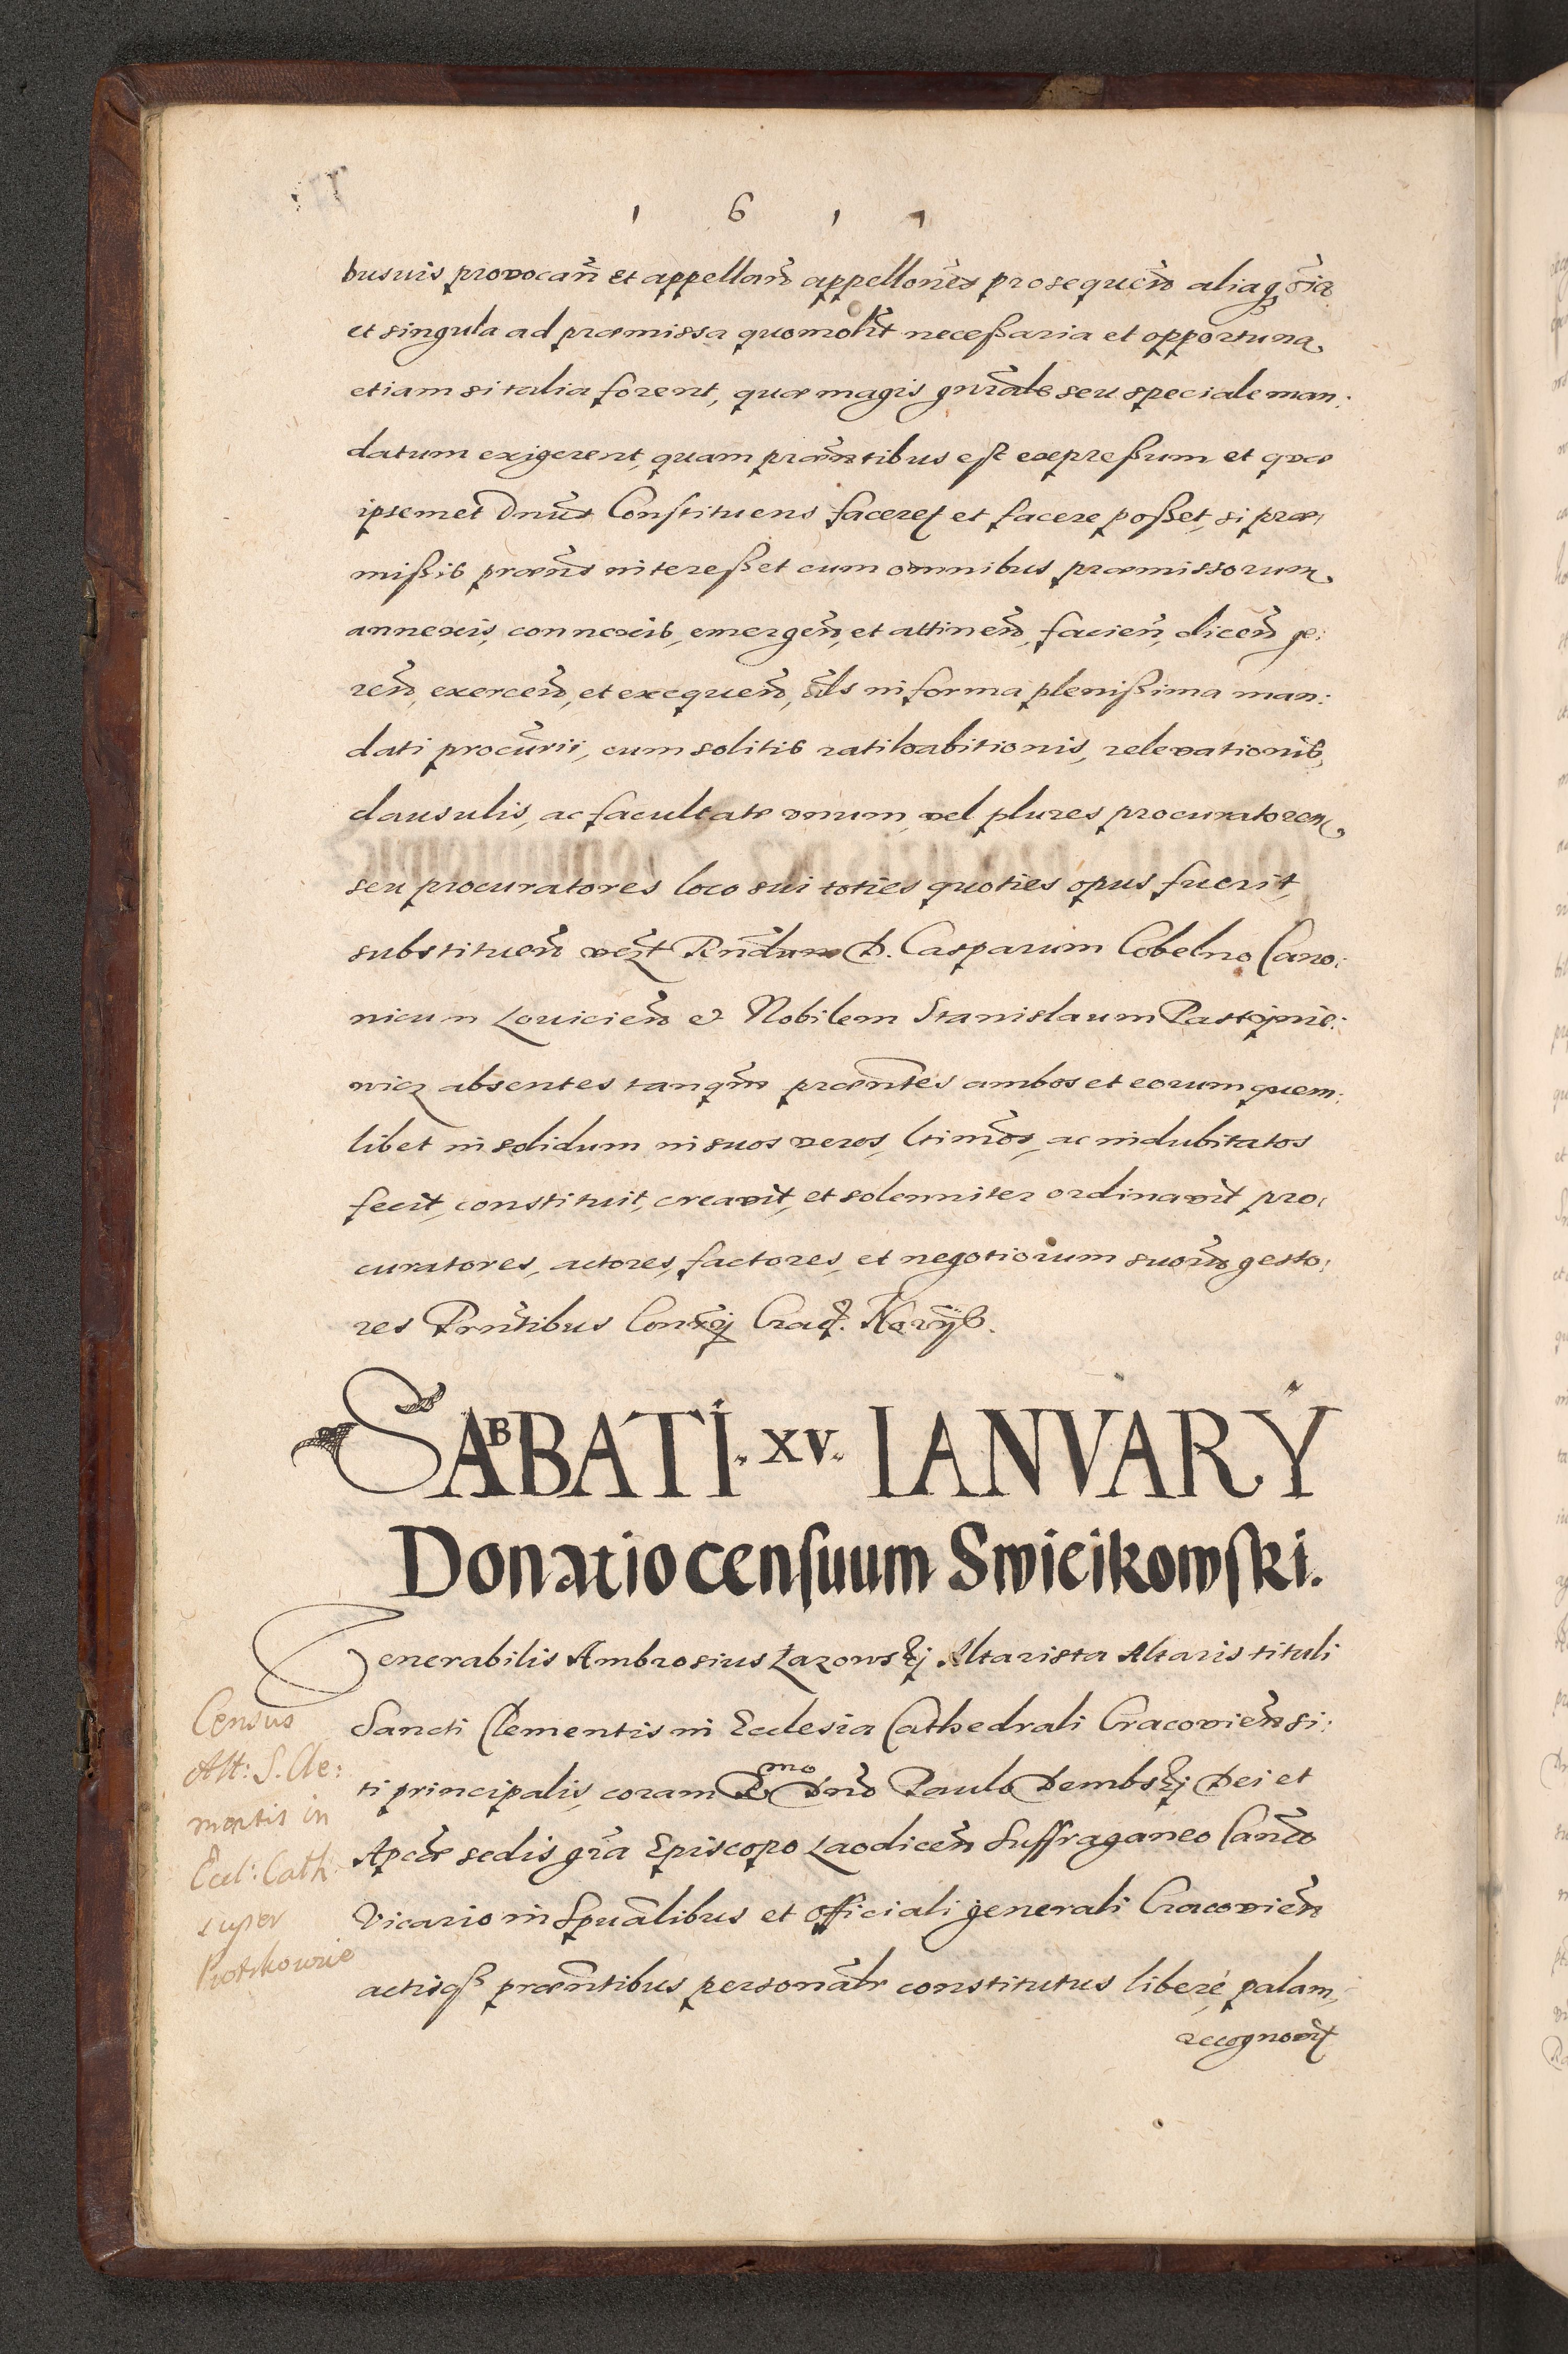 1 6 1 1
busuis provocan̄ et appellan̄ appellōnes prosequen̄ aliaq̨ oīa
et singula ad præmissa quomolt̄ neceßaria et opportuna
etiam si talia forent, quæ magis gn̄rale seu speciale man:
datum exigerent, quam præn̄tibus est expreßum et quæ
ipsemet Dn̄us Constituens faceret et facere poßet, si præ:
mißis præn̄s intereßet cum omnibus præmissorum
annexis, connexis, emergen̄, et attinen̄, facien̄, dicen̄ ge:
ren̄, exercen̄, et exequen̄, āls in forma plenißima man:
dati procūrii, cum solitis ratihabitionis, relevationis,
clausulis, ac facultate vnum, vel plures procuratorem,
seu procuratores loco sui toties quoties opus fuerit,
substituen̄ vēzt Vēn̄dum D. Casparum Cobelno Cano:
nicum Louicien̄ & Nobilem Stanislaum Pastÿnie:
wicz absentes tanqm̄ præn̄tes ambos et eorum quem:
libet in solidum in suos veros, ltimōs, ac indubitatos
fecit, constituit, creavit, et solenniter ordinavit pro:
curatores, actores, factores, et negotiorum suorū gesto:
res Prn̄tibus Cracę. Nōrÿs.
SABBATI. XV. IANVARŸ
Donatio censuum Swicikowski.
Venerabilis Ambrosius Łazowskj Altarista Altaris tituli
Sancti Clementis in Ecclesia Cathedrali Cracovien̄ si:
ti principalis, coram Rmo Dnō Paulo Dembskj Dei et
Apcæ sedis grā̄ Episcopo Laodicen̄ Suffraganeo Canco
Vicario in Spuālibus et Officiali generali Cracovien̄
actisq̨ præn̄tibus personalr̄ constitutus liberè, palam,
recognovit
Census
Alt: S. Cle:
mentis in
Eccl: Cath:
super
Piotrkowie